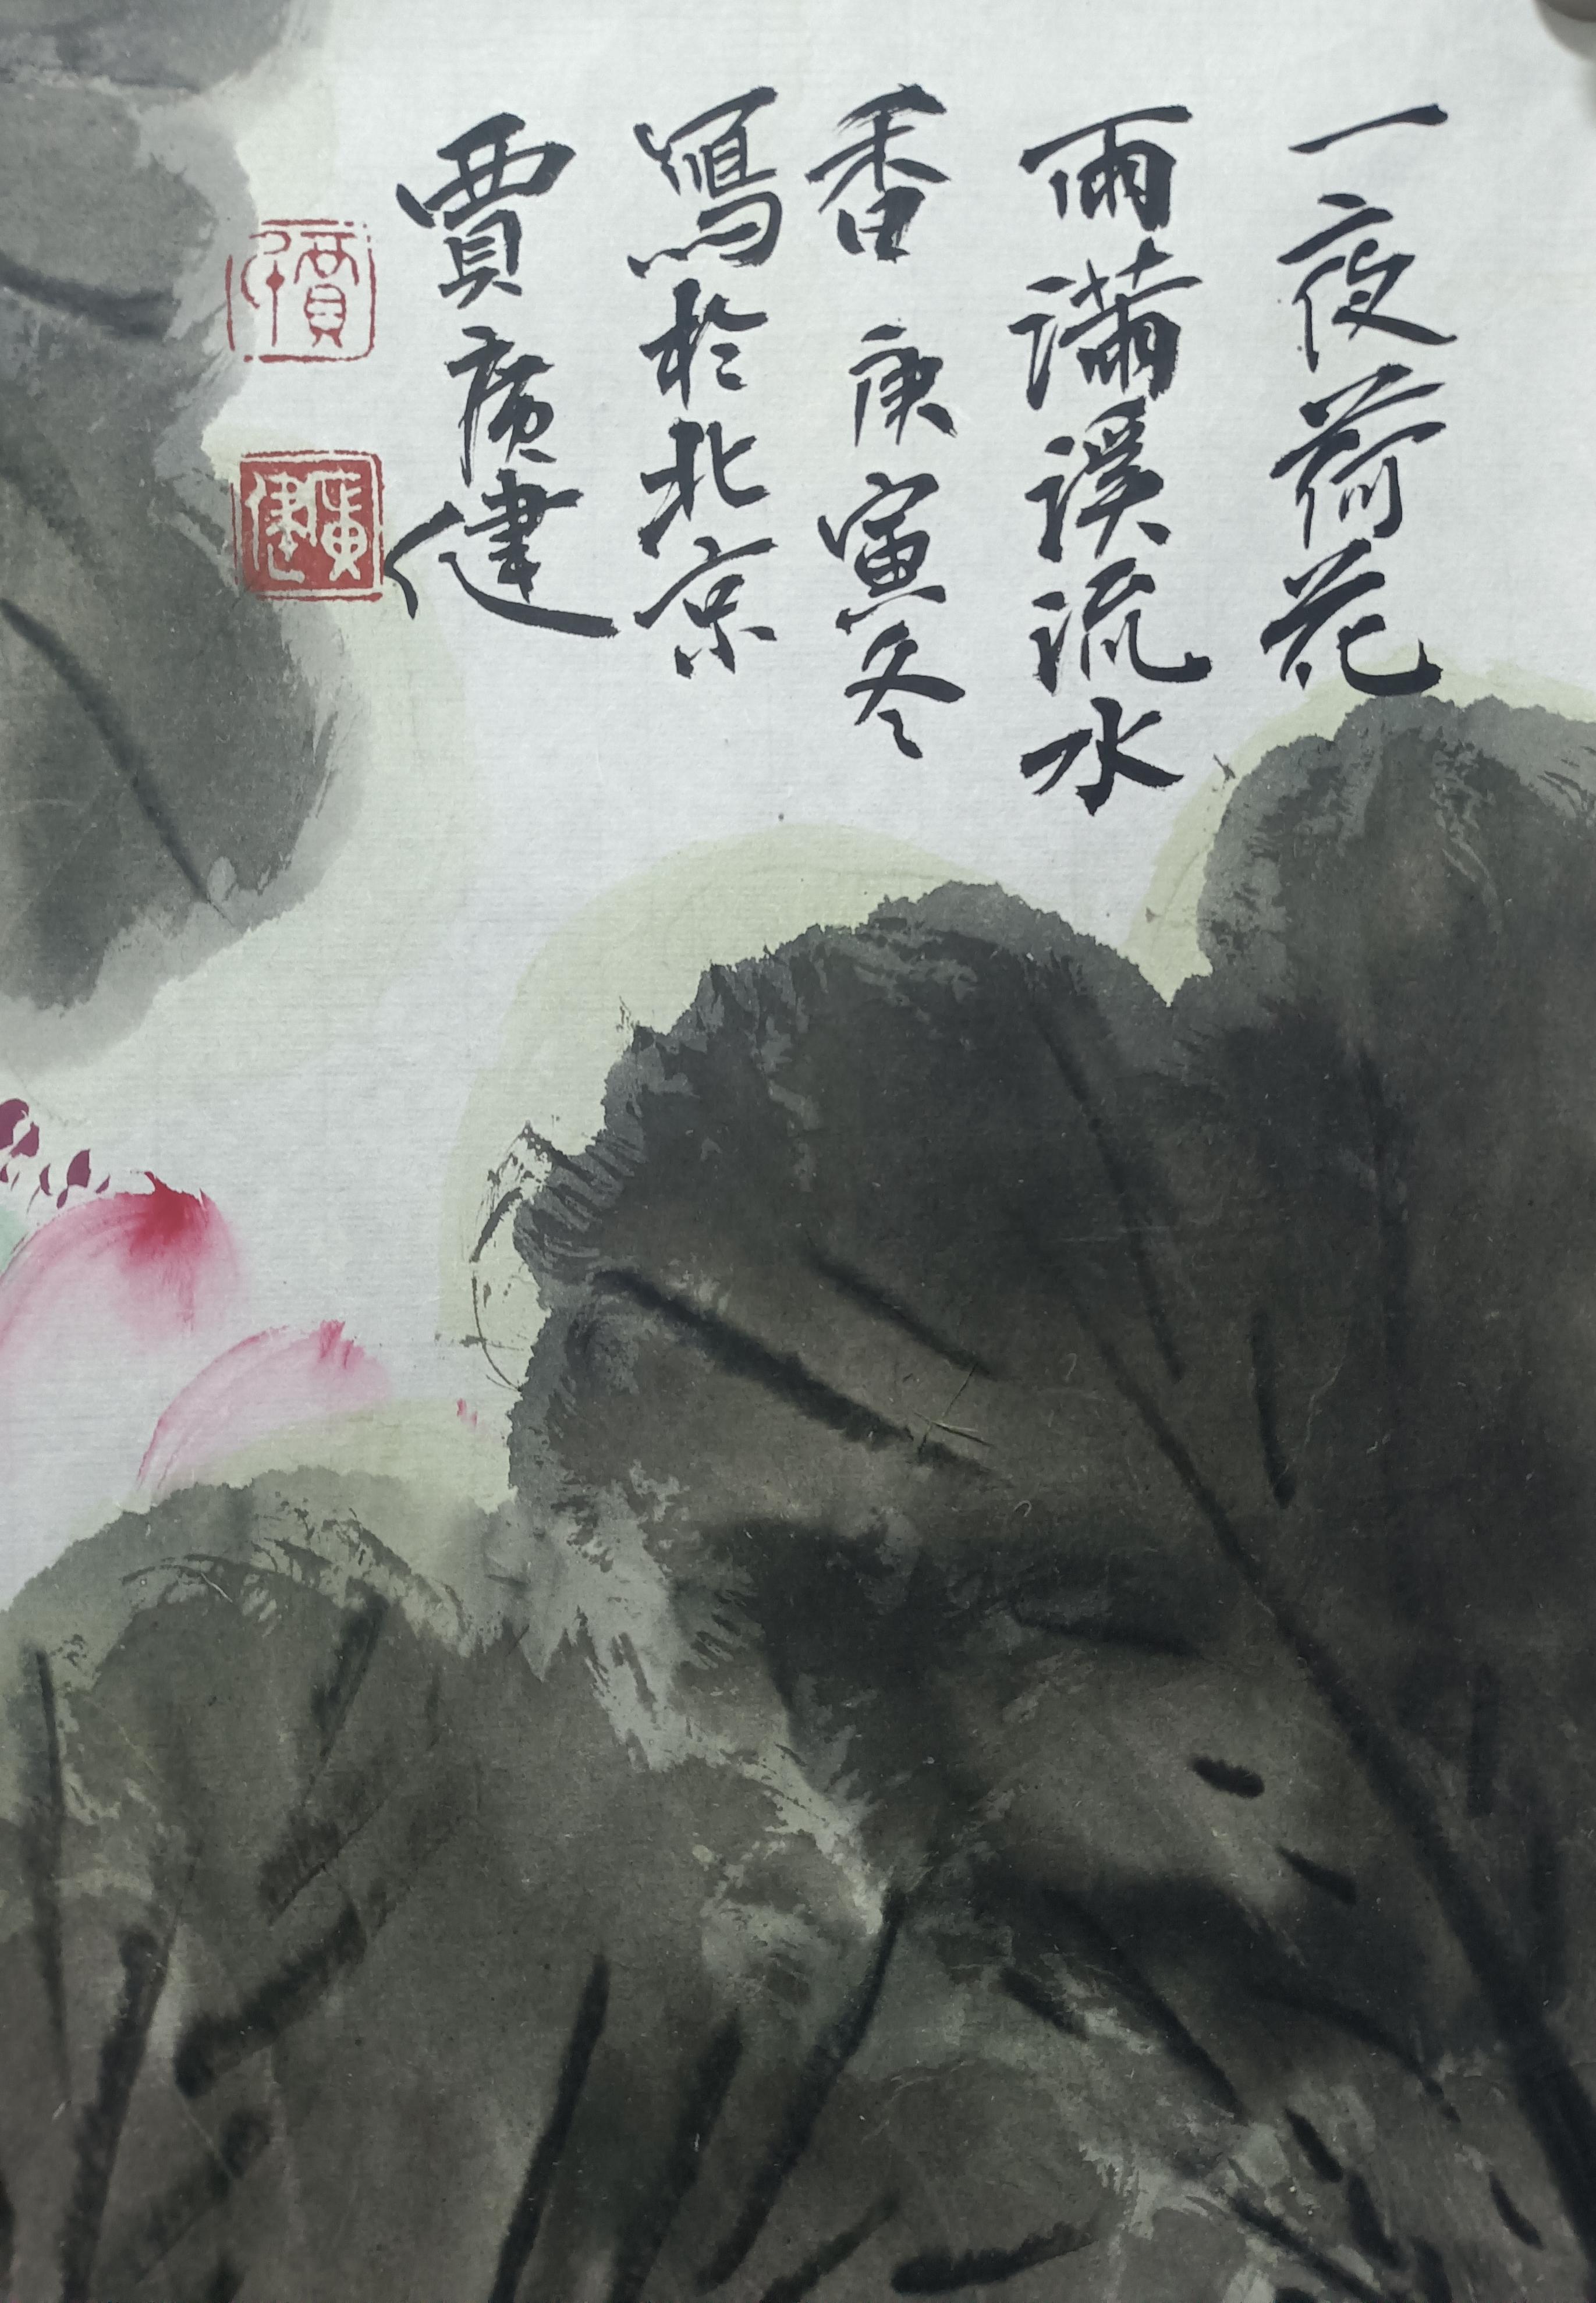 一夜荷花
雨满溪流水
香 庚寅冬
寫於北京
賈廣健
賈
廣健